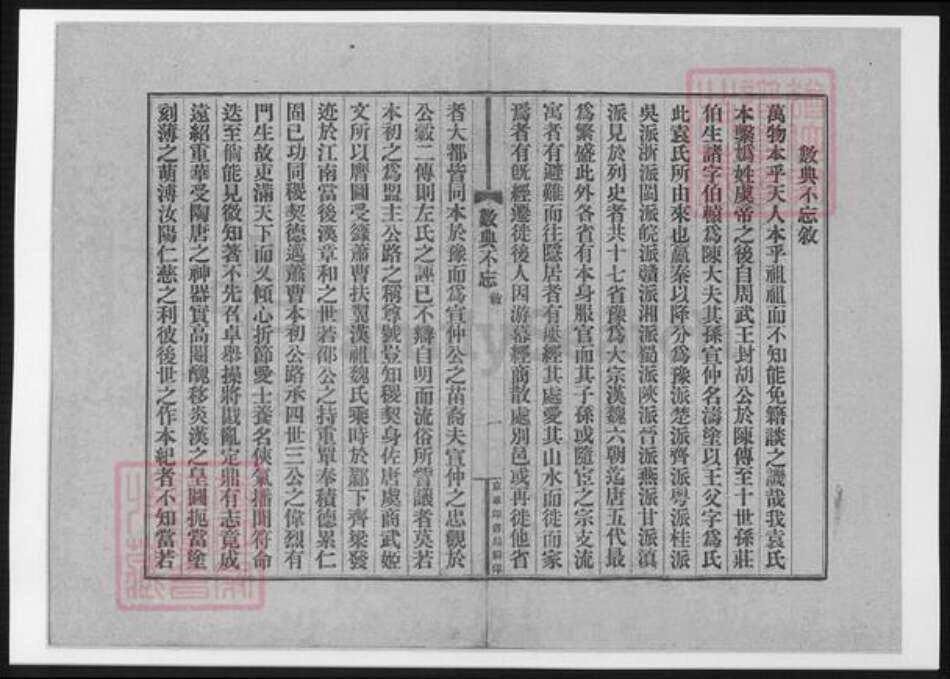 數典不忘敘
萬物本乎天人本乎祖祖而不知能免籍談之譏哉我袁氏
本繫媯姓虞帝之後自周武王封胡公於陳傳至十世孫莊
伯生諸字伯轅為陳大夫其孫宣仲名濤塗以王父字為氏
此袁氏所由來也嬴秦以降分為豫派楚派齊派粵派桂派
吳派浙派閩派皖派贛派湘派蜀派陝派晉派燕派甘派滇
派見於列史者共十七省豫為大宗漢魏六朝迄唐五代最
為繁盛此外各省有本身服官而其子孫或隨宦之宗支流
寓者有避難而往隱居者有歷經其處愛其山水而徙而家
焉者有旣經遷徙後人因游幕經商散處別邑或再徙他省
數典不忘 敘 一
京華印書局
者大都皆同本於豫而為宣仲公之苗裔夫宣仲之忠觀於
公穀二傳則左氏之誣已不辯自明而流俗所訾議者莫若
本初之為盟主公路之稱尊號豈知稷契身佐唐虞商武姬
文所以膺圖受籙蕭曹扶翼漢祖魏氏乘時於鄴下齊梁發
迹於江南當後漢章和之世若邵公之持重單奉積德累仁
固已功同稷契德邁蕭曹本初公路承四世三公之偉烈有
門生故吏滿天下而又傾心折節愛士養名俠氣播聞符命
迭至倘能見微知著不先名卓舉操將戡亂定鼎有志竟成
遠紹重華受陶唐之神器實高閹醜移炎漢之皇圖扼當塗
刻薄之萌溥汝陽仁慈之利彼後世之作本紀者不知當若